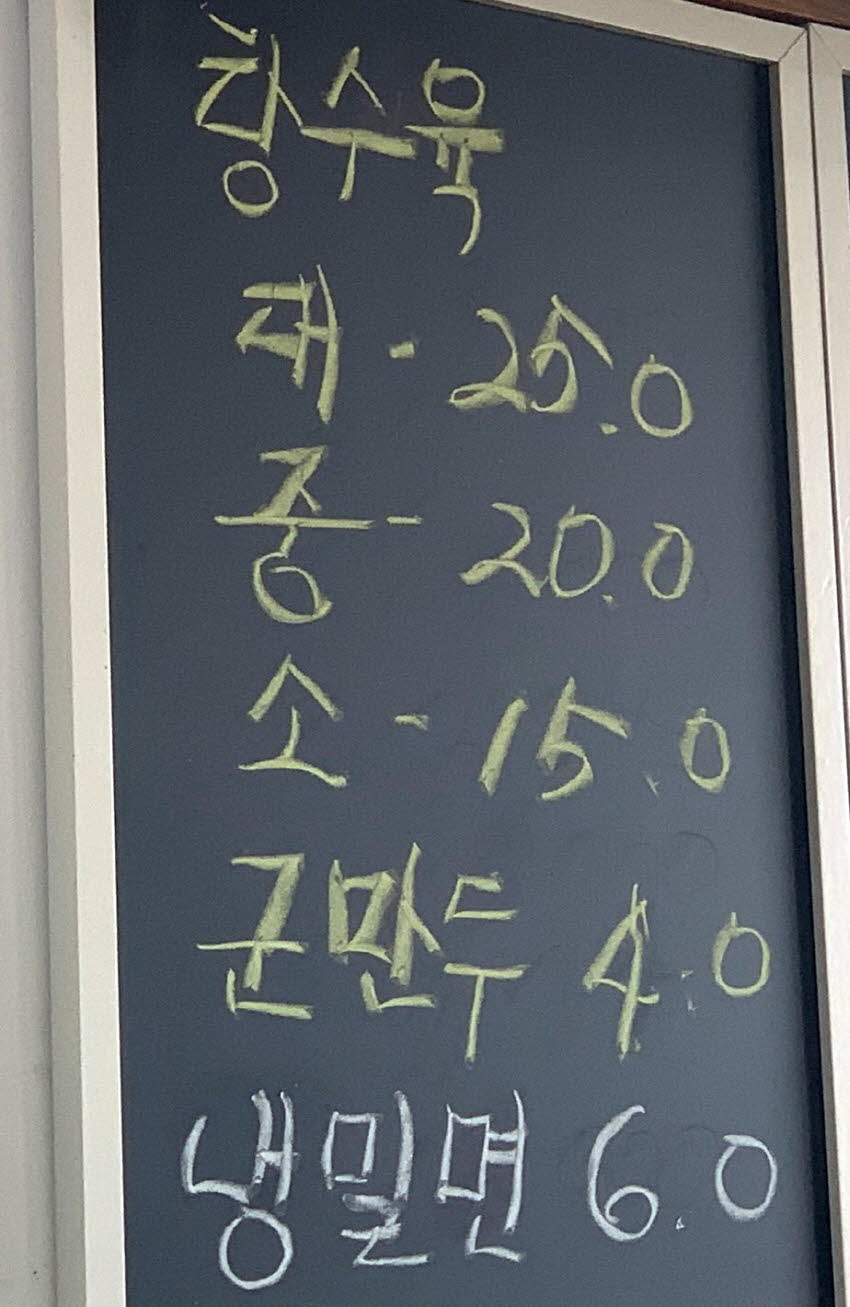 탕수육
대 - 25.0
중 - 20.0
소 - 15.0
군만두 4.0
냉밀면 6.0